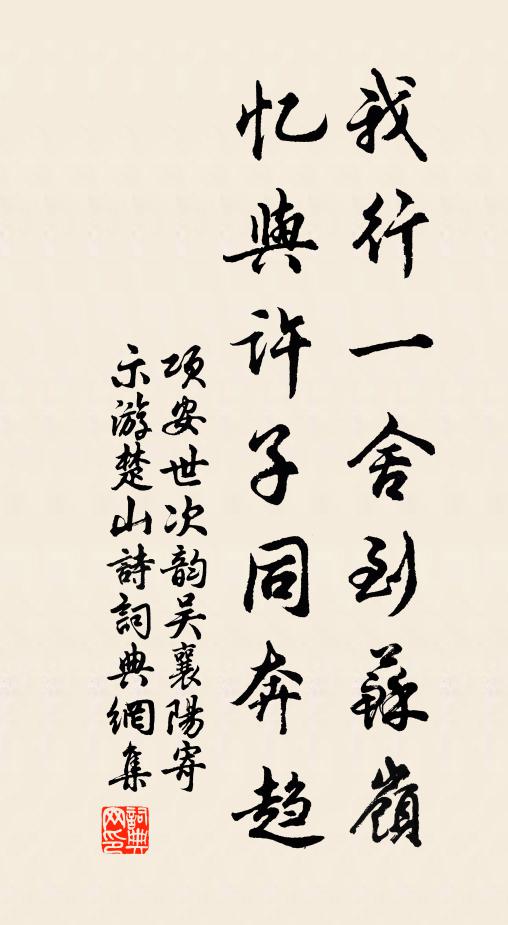 我行一舍到蘇嶺
忆與許子同奔趋
项安世次韵吴襄陽寄
示游楚山詩詞典網集
詞典网印